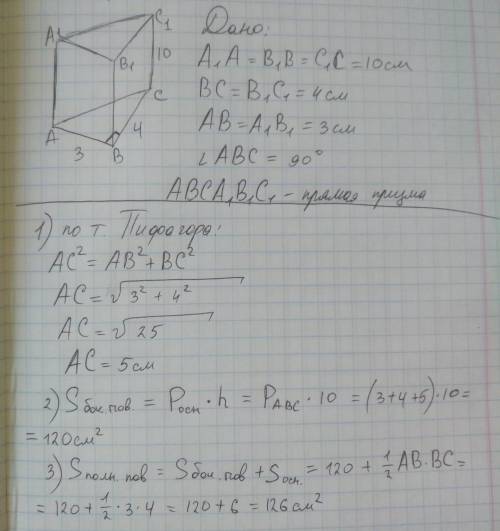 Дано:
A₁A = B₁B = C₁C = 10 см
BC = B₁C₁ = 4 см
AB = A₁B₁ = 3 см
∠ABC = 90°
ABCA₁B₁C₁ - прямая призма
A₁
C₁
B₁
10
C
A
4
3
B
1) по т. Пифагора:
AC² = AB² + BC²
AC = √3² + 4²
AC = √25
AC = 5 см
2) Sбок.пов. = Pосн · h = PABC · 10 = (3+4+5)·10 =
= 120 см²
3) Sполн.пов = Sбок.пов + Sосн. = 120 + 1/2 AB·BC =
= 120 + 1/2 · 3 · 4 = 120 + 6 = 126 см²